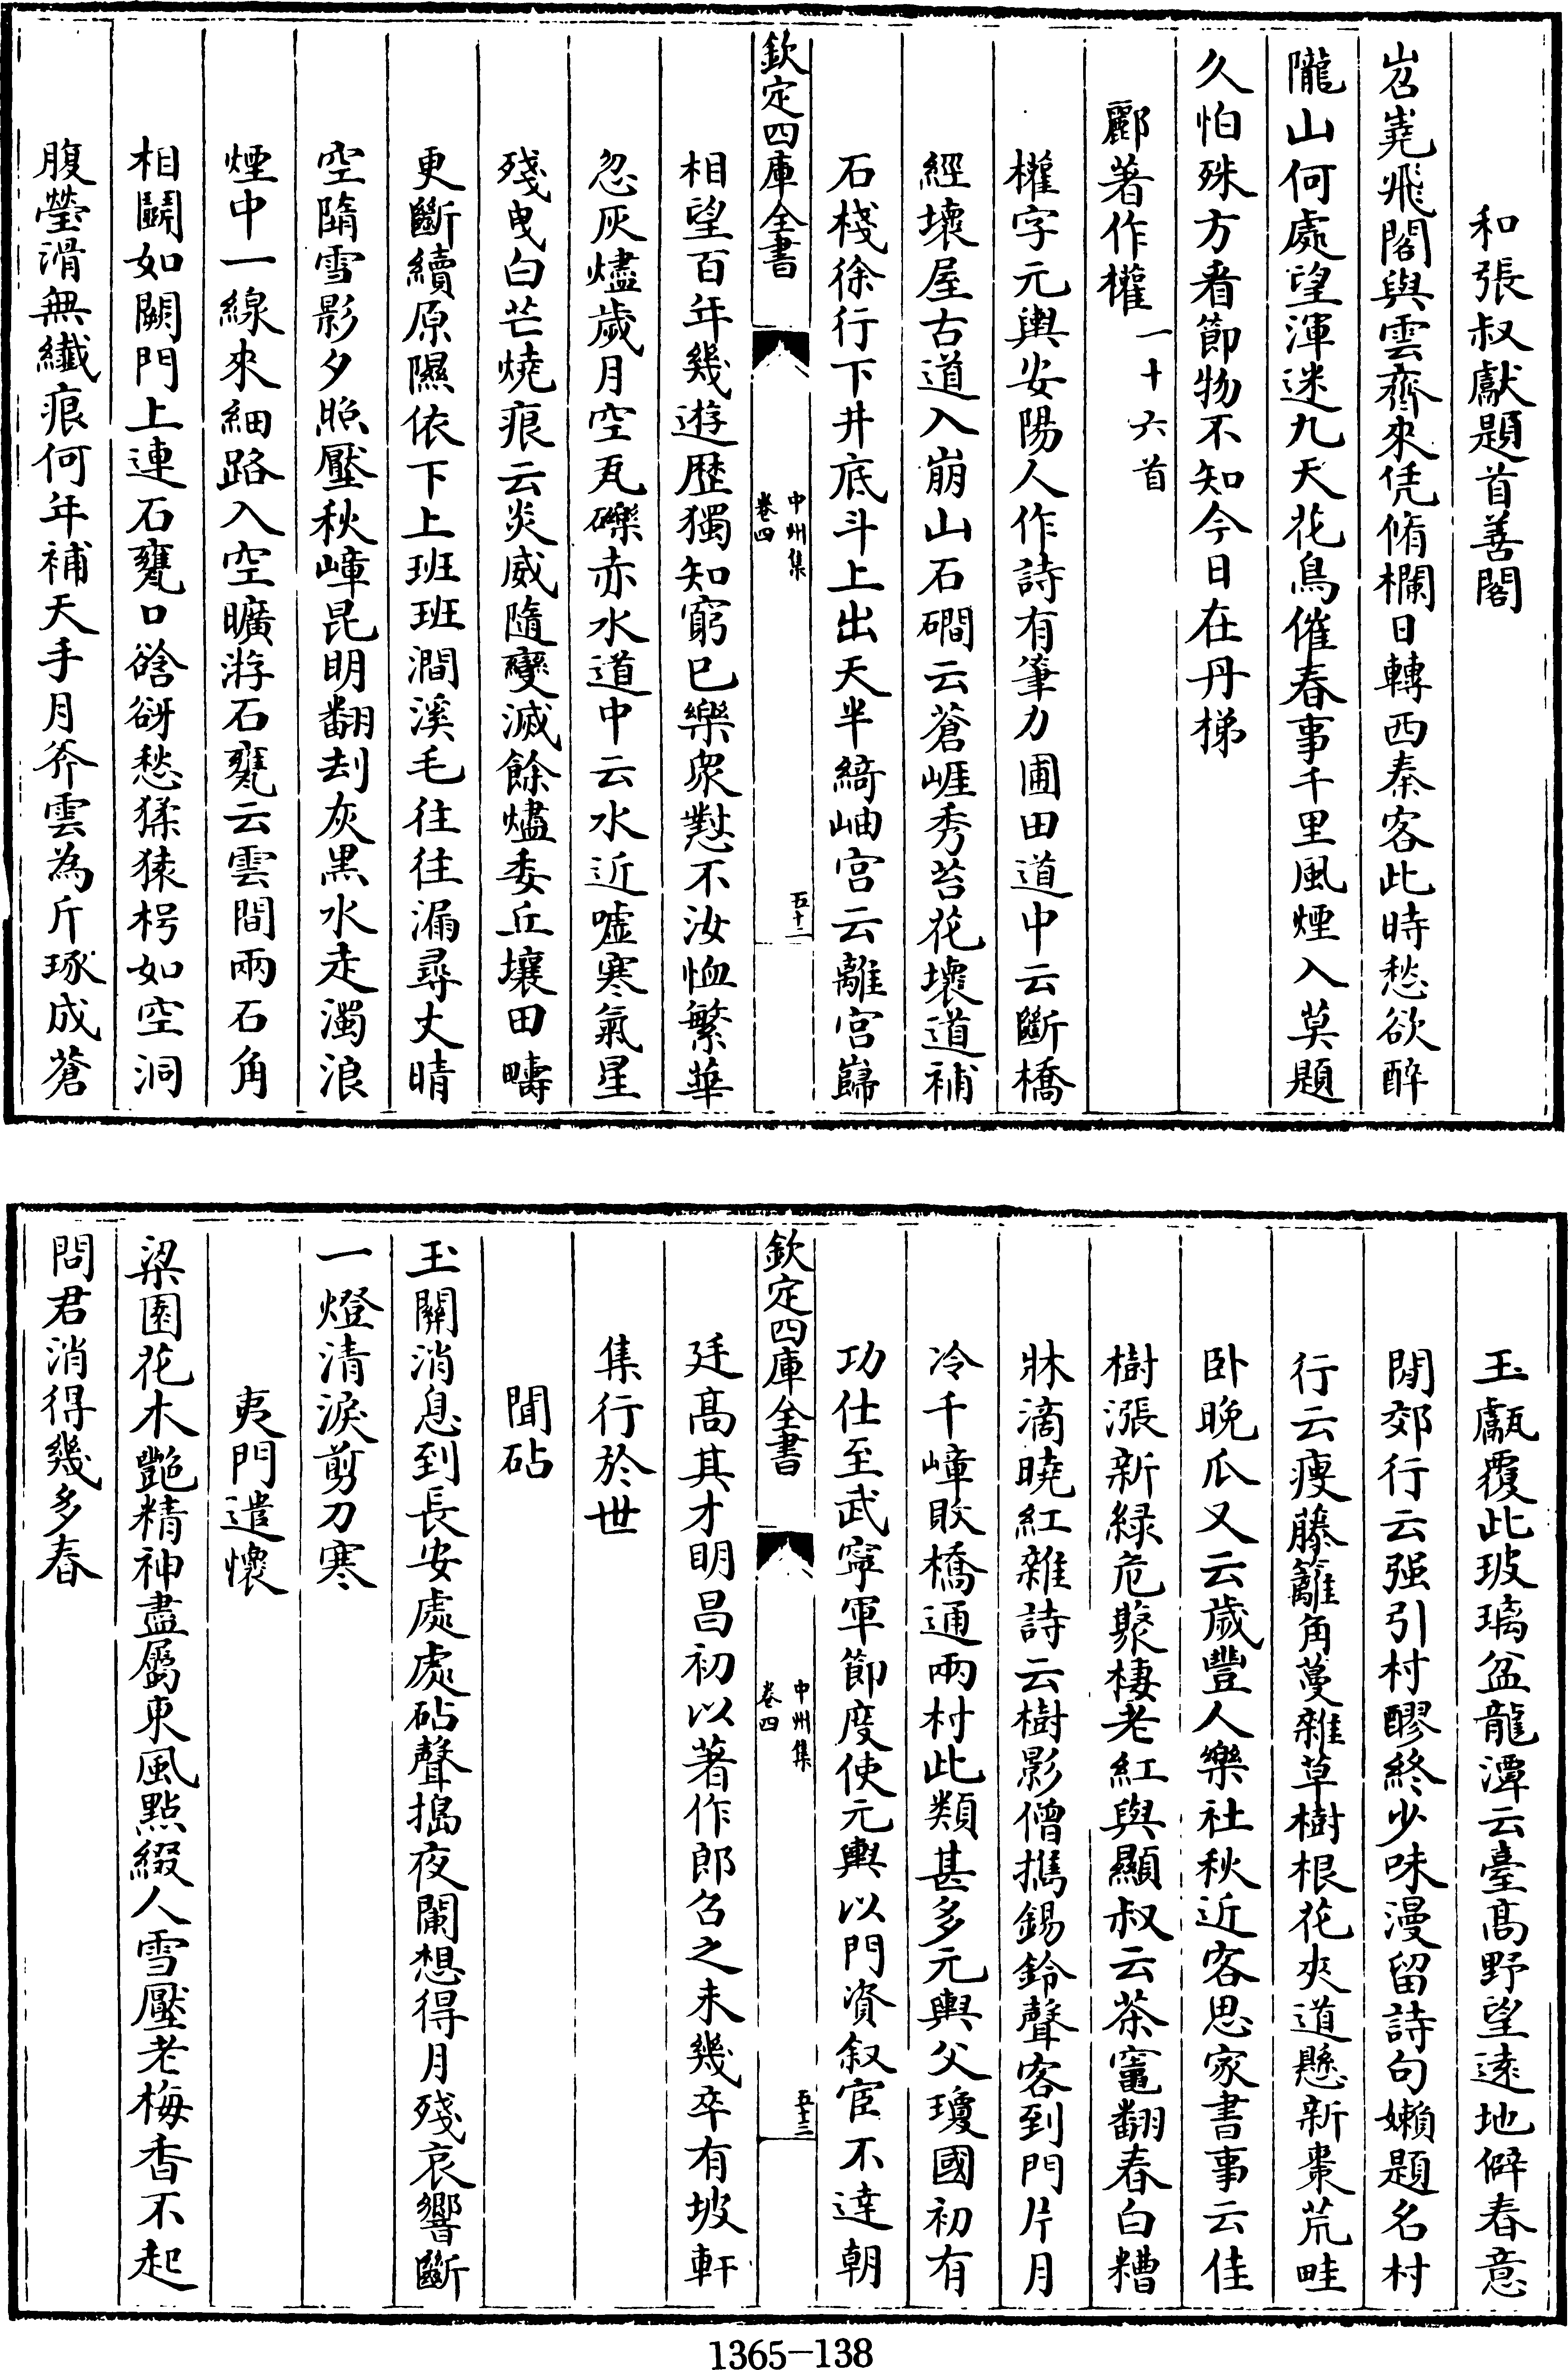 和張叔獻題首善閣
岧嶤飛閣與雲齊來凭脩欄日轉西秦客此時愁欲醉
隴山何處望渾迷九天花鳥催春事千里風煙入莫題
久怕殊方看節物不知今日在丹梯
酈著作權一十六首
權字元輿安陽人作詩有筆力圃田道中云斷橋
經壞屋古道入崩山石磵云蒼崕秀苔花壞道補
石棧徐行下井底斗上出天半綺岫宫云離宫巋
欽定四庫全書
中州集
卷四
五十二
相望百年幾遊歴獨知窮巳樂衆懟不汝恤繁華
忽灰燼歲月空瓦礫赤水道中云水近嘘寒氣星
殘曳白芒燒痕云炎威隨變滅餘燼委丘壤田疇
更斷續原隰依下上班班澗溪毛往往漏尋丈晴
空隋雪影夕照壓秋嶂昆明翻刦灰黒水走濁浪
煙中一線來細路入空曠游石甕云雲間兩石角
相鬭如闕門上連石甕口谽谺愁猱猿枵如空洞
腹瑩滑無纎痕何年補天手月斧雲為斤琢成蒼
玉甗覆此玻璃盆龍潭云臺髙野望逺地僻春意
閒郊行云强引村醪終少味漫留詩句嬾題名村
行云瘦藤籬角蔓雜草樹根花夾道懸新棗荒畦
卧晚瓜又云歲豐人樂社秋近客思家書事云佳
樹漲新緑危㙇棲老紅與顯叔云茶竈翻春白糟
牀滴曉紅雜詩云樹影僧擕錫鈴聲客到門片月
冷千嶂㪇橋通兩村此類甚多元輿父瓊國初有
功仕至武寧軍節度使元輿以門資叙宦不達朝
欽定四庫全書
中州集
卷四
五十三
廷髙其才明昌初以著作郎召之未幾卒有坡軒
集行於世
聞砧
玉關消息到長安處處砧聲搗夜闌想得月殘哀響斷
一燈清淚剪刀寒
夷門遣懷
梁園花木艷精神盡屬東風點綴人雪壓老梅香不起
問君消得幾多春
1365-138